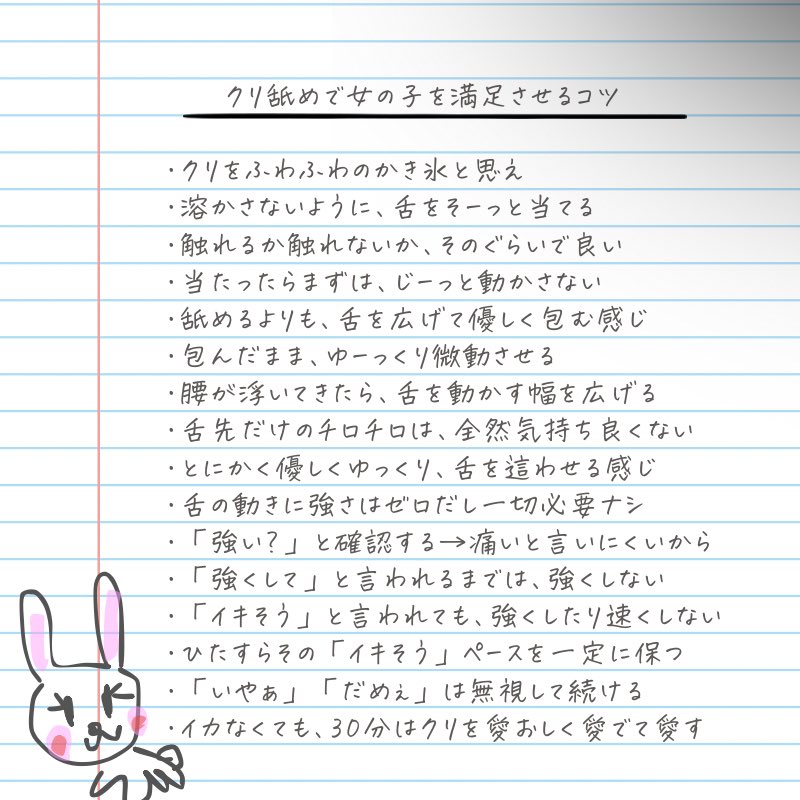 クリ舐めで女の子を満足させるコツ
・クリをふわふわのかき氷と思え
・溶かさないように、舌をそーっと当てる
・触れるか触れないか、そのぐらいで良い
・当たったらまずは、じーっと動かさない
・舐めるよりも、舌を広げて優しく包む感じ
・包んだまま、ゆーっくり微動させる
・腰が浮いてきたら、舌を動かす幅を広げる
・舌先だけのチロチロは、全然気持ち良くない
・とにかく優しくゆっくり、舌を這わせる感じ
・舌の動きに強さはゼロだし一切必要ナシ
・「強い？」と確認する→痛いと言いにくいから
・「強くして」と言われるまでは、強くしない
・「イキそう」と言われても、強くしたり速くしない
・ひたすらその「イキそう」ペースを一定に保つ
・「いやぁ」「だめぇ」は無視して続ける
・イカなくても、30分はクリを愛おしく愛でて愛す